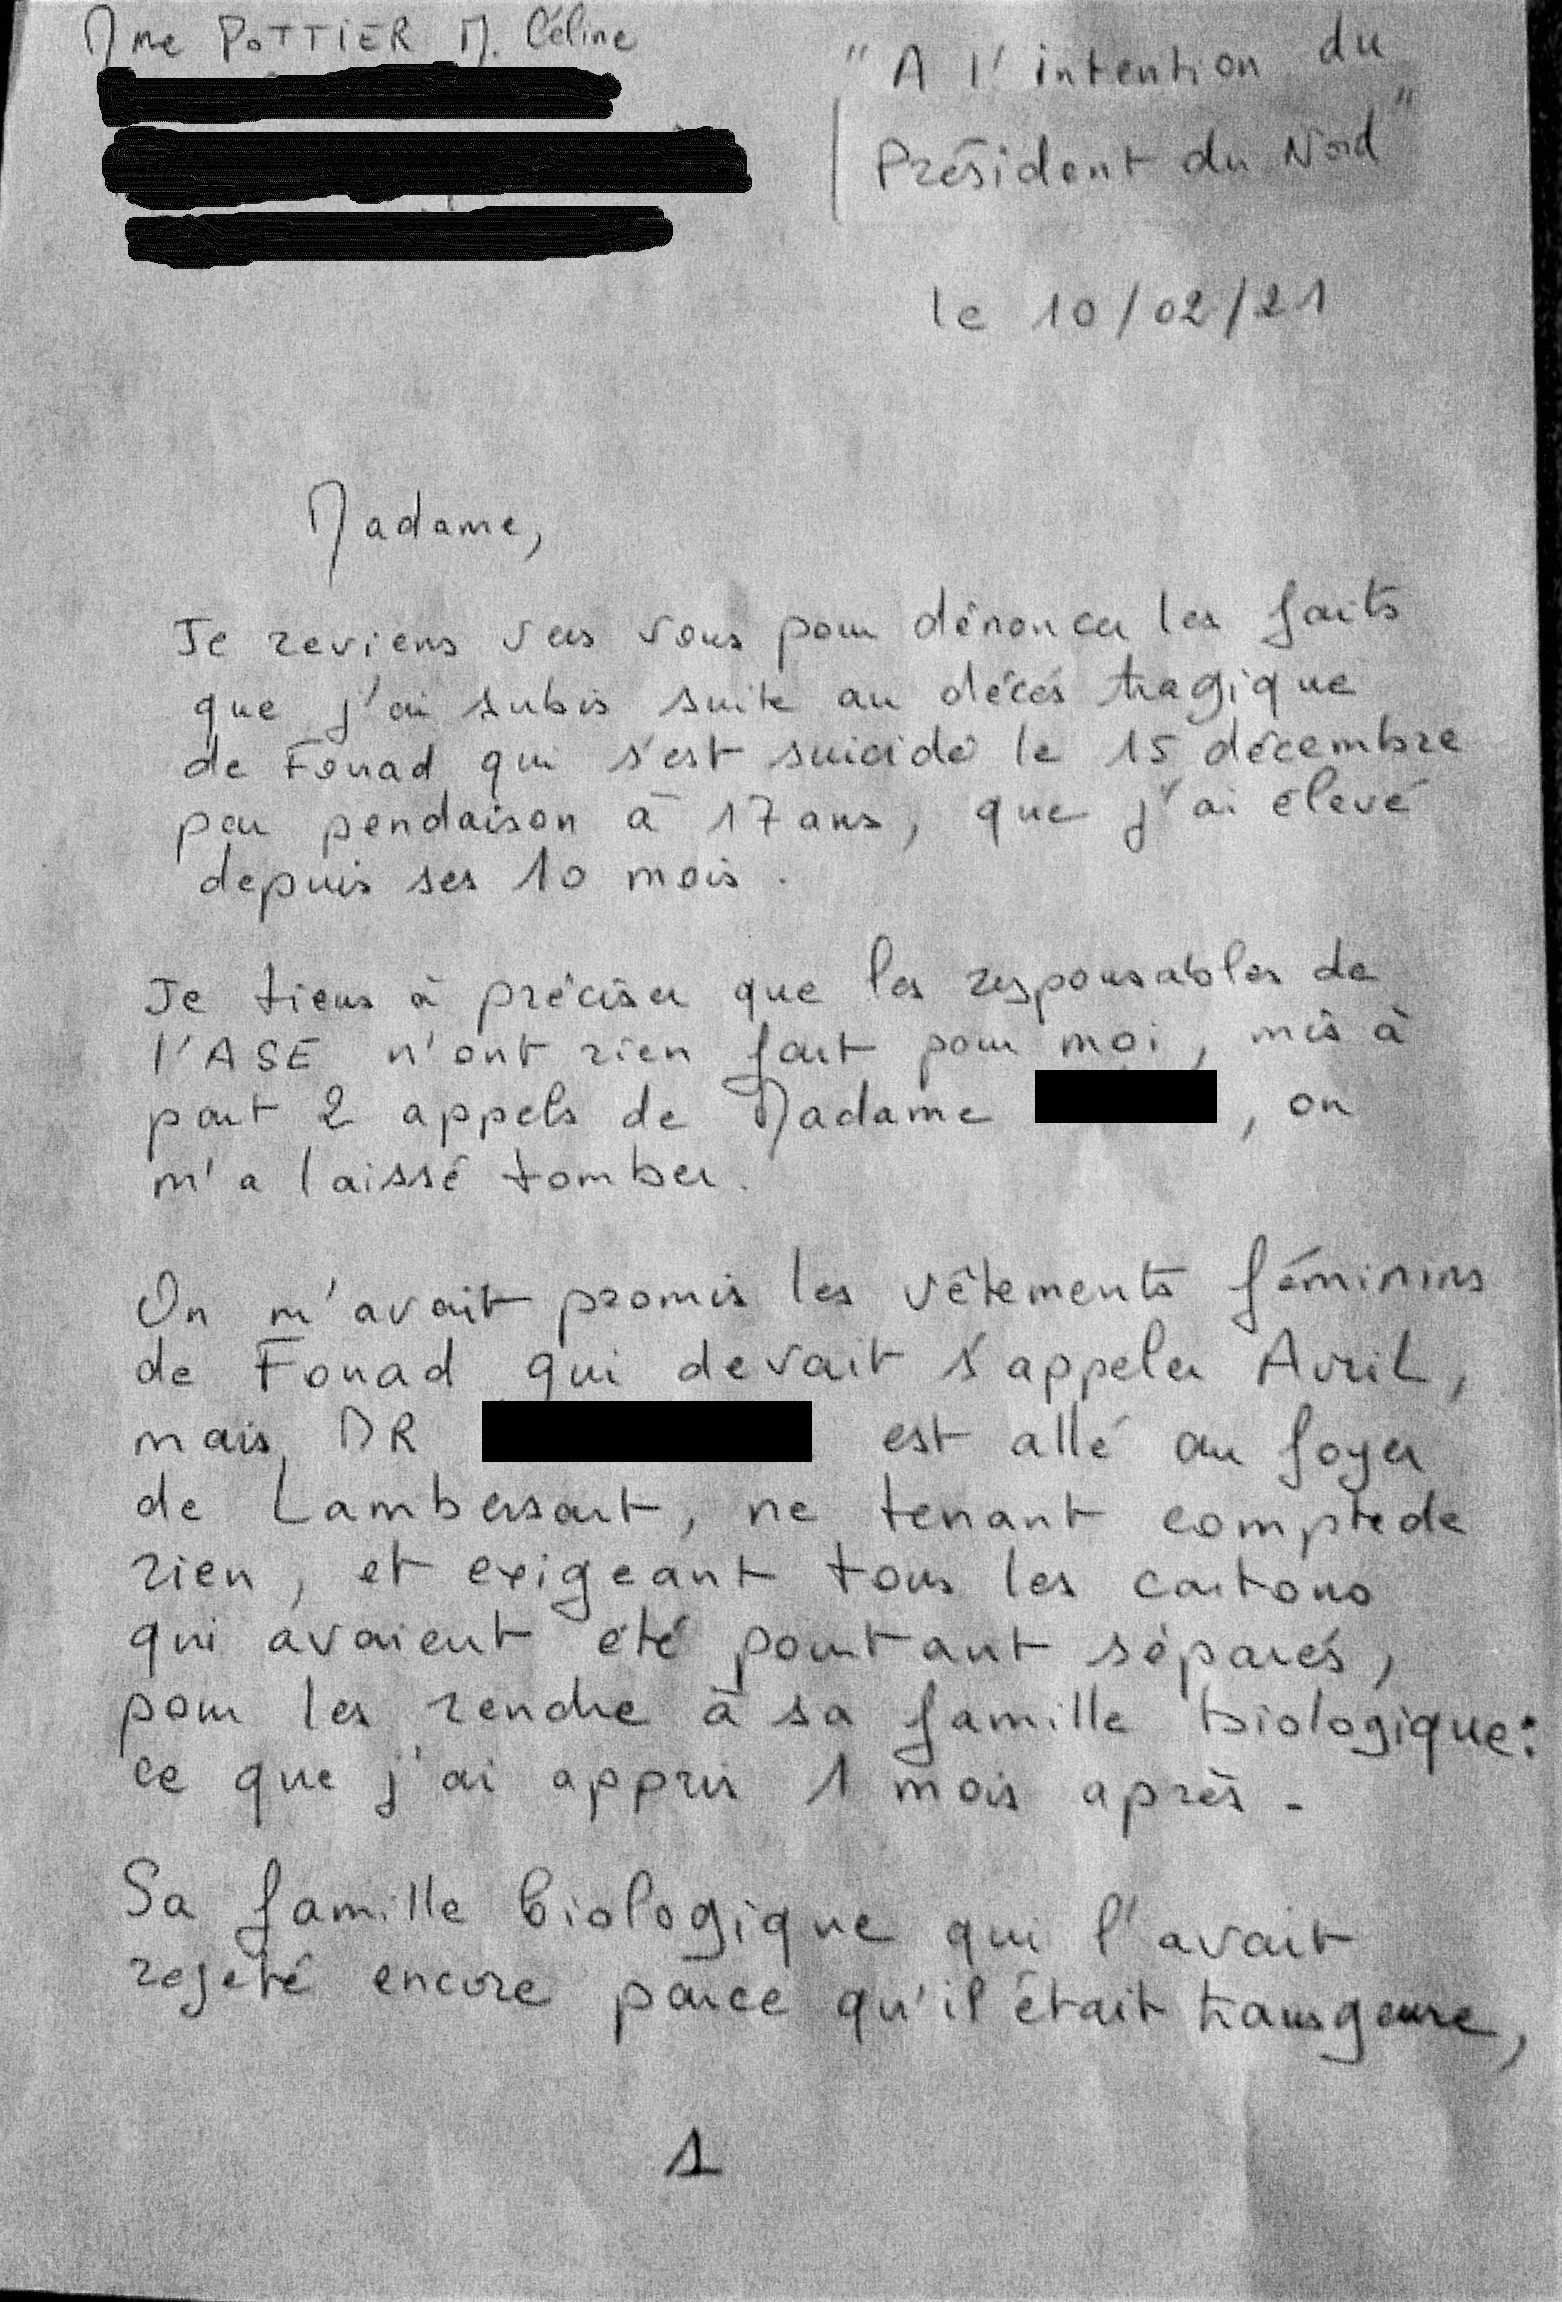 Mme POTTIER M. Céline
"A l'intention du
Président du Nord"
le 10/02/21
Madame,
Je reviens vers vous pour dénoncer les faits
que j'ai subis suite au décés tragique
de Fouad qui s'est suicidé le 15 décembre
par pendaison à 17 ans, que j'ai élevé
depuis ses 10 mois.
Je tiens à préciser que les responsables de
l'ASE n'ont rien fait pour moi, mis à
part 2 appels de Madame , on
m'a laissé tomber.
On m'avait promis les vêtements féminins
de Fouad qui devait s'appeler Avril,
mais, DR est allé au foyer
de Lambersart, ne tenant compte de
rien, et exigeant tous les cartons
qui avaient été pourtant séparés,
pour les rendre à sa famille biologique:
ce que j'ai appris 1 mois après -
Sa famille biologique qui l'avait
rejeté encore parce qu'il était transgenre,
1